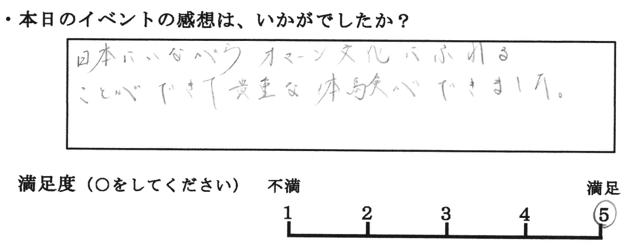 ・本日のイベントの感想は、いかがでしたか？
日本にいながら オマーン文化にふれる
ことができて貴重な体験ができました。
満足度（○をしてください） 不満 満足
1 2 3 4 5